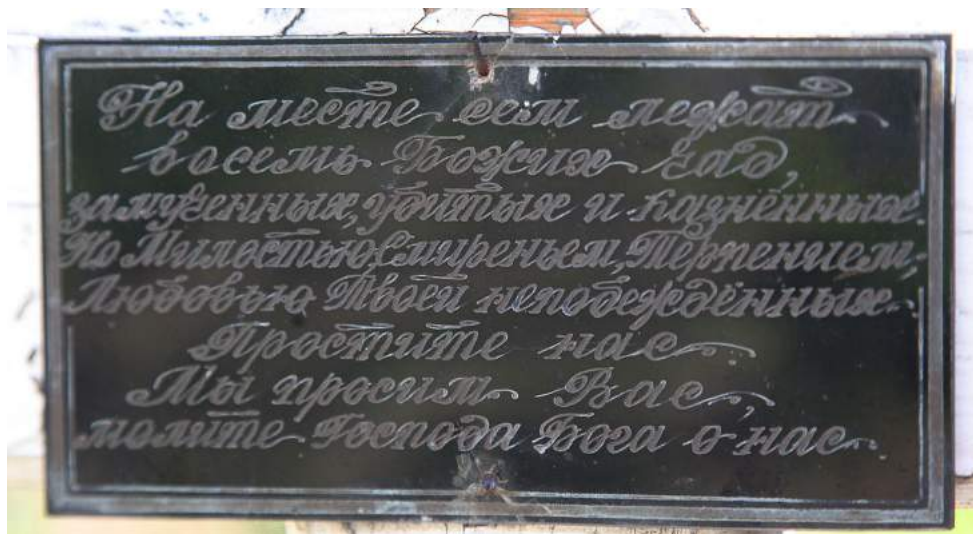 На месте сем лежат
восемь Божих чад,
замученных, убитых и казнённых.
Но Милостью, Смиреньем, Терпением,
Любовью Твоей непобеждённых.
Простите нас
Мы просим Вас,
молите Господа Бога о нас